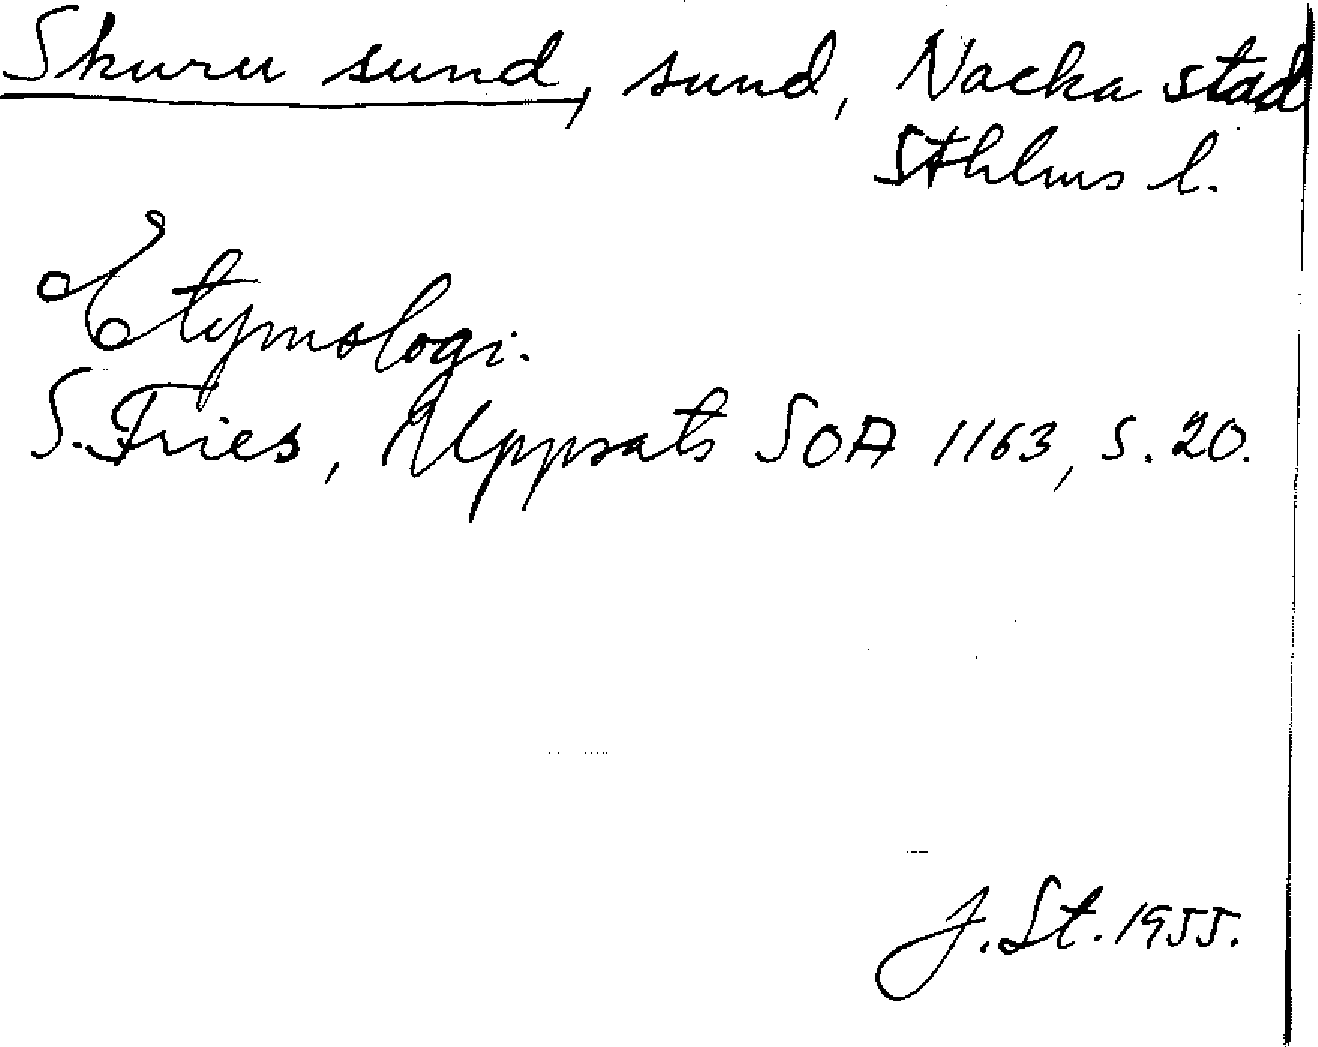 Skuru sund, sund, Nacka stad
Sthlms l.
Etymologi.
S. Fries, Uppsats SOA 1163, s. 20.
J. St. 1955.